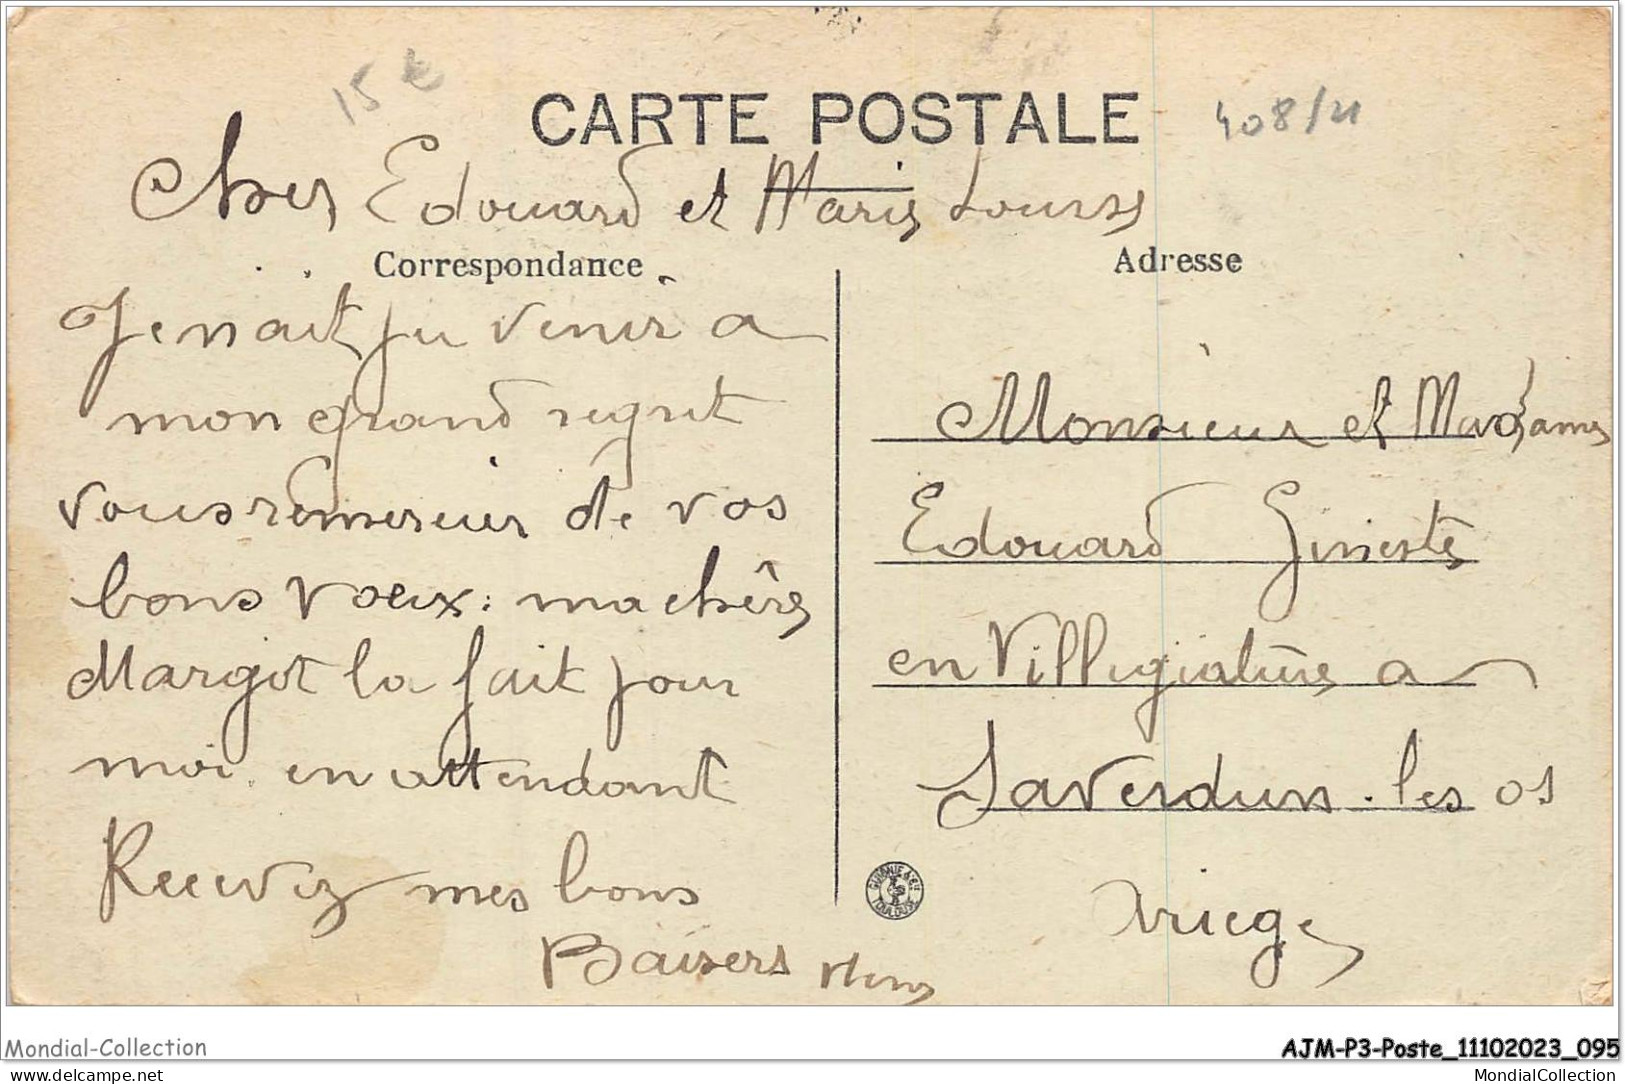 15 €
CARTE POSTALE
408/21
Cher Edouard et Marie Louise
Correspondance
Je nait pu venir a
mon grand regret
vous remercier de vos
bons voeux. ma chère
Margot la fait pour
moi. en attendant
Recevez mes bons
Baisers
Adresse
Monsieur et Madame
Edouard Gineste
en Villegiature a
Saverdun. les os
Ariege
TOULOUSE
Mondial-Collection
AJM-P3-Poste_11102023_095
delcampe.net
MondialCollection